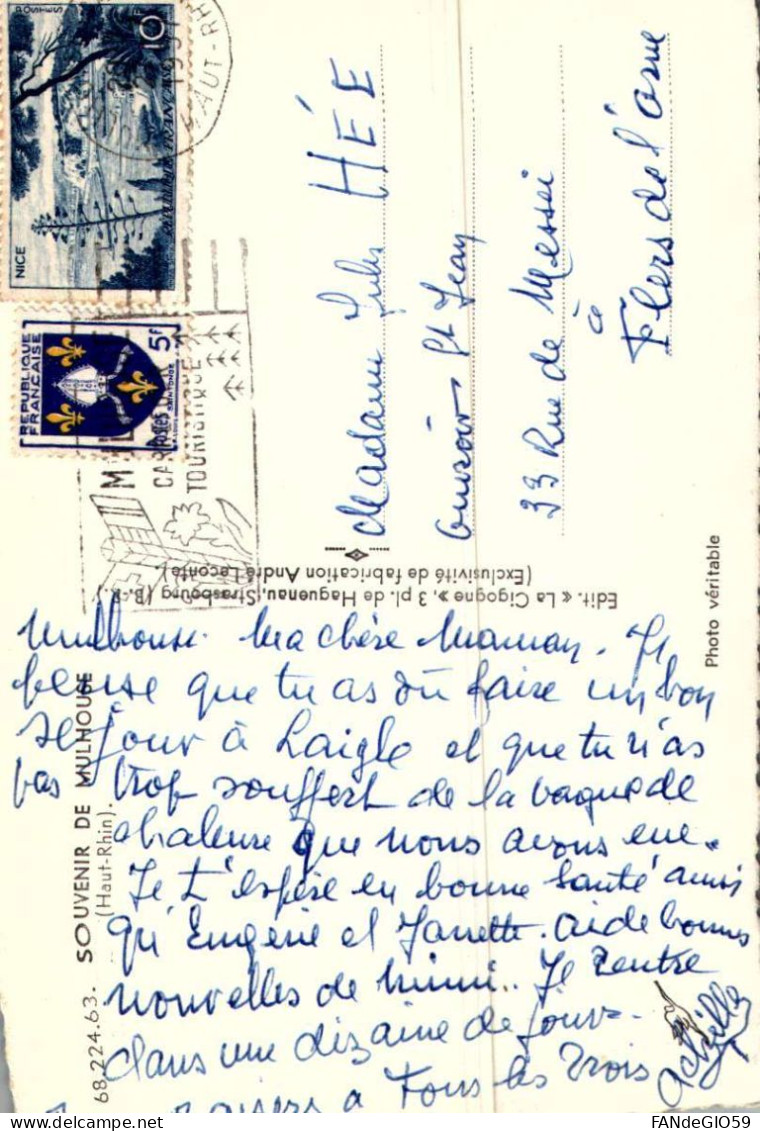 NICE
10F
POSTES
HAUT-RH
REPUBLIQUE
FRANÇAISE
5F
POSTES
SAINTONGE
TOURISTIQUE
Madame Jules HÉE
St Jean
33 Rue de Messei
à
Flers de l'Orne
Edit. « La Cigogne », 3 pl. de Haguenau, Strasbourg (B.-R.)
(Exclusivité de fabrication André Leconte)
Photo véritable
68.224.63. SOUVENIR DE MULHOUSE
(Haut-Rhin).
Mulhouse. Ma chère Maman. Je
pense que tu as dû faire un bon
séjour à Laigle et que tu n'as
pas trop souffert de la vague de
chaleur que nous avons eue.
Je t'espère en bonne santé ainsi
qu'Eugénie et Jannette. bonnes
nouvelles de Mimi.. Je rentre
dans une dizaine de jours.
à Tous les Trois
FANdeGIO59